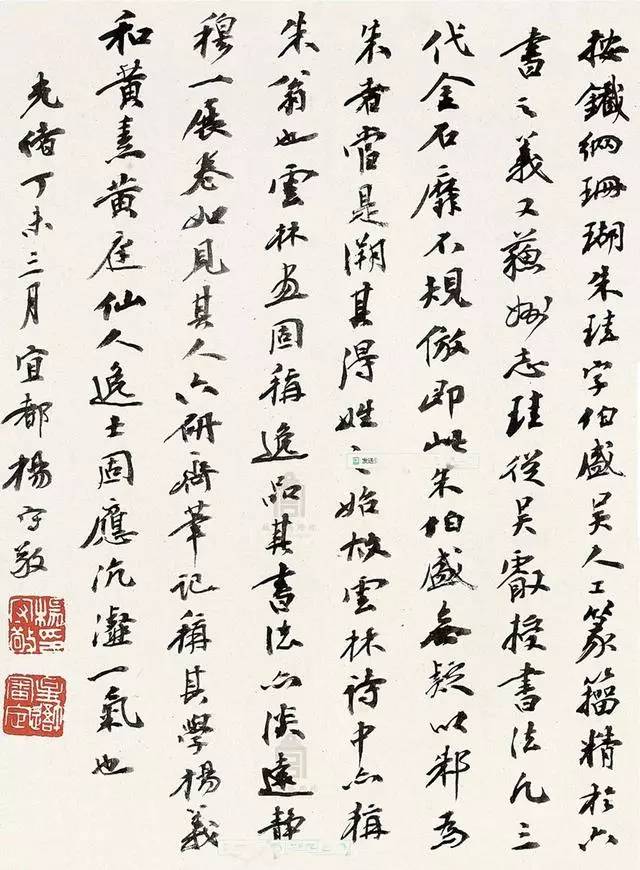 按鐵網珊瑚朱珪字伯盛吴人工篆籀精於六
書之義又蘇州志珪從吴叡授書法凡三
代金石靡不規倣即此朱伯盛無疑以邾為
朱者當是溯其淂姓之始故雲林詩中亦稱
朱翁也雲林画固稱逸品其書法亦淡遠静
穆一展卷如見其人六研齋筆記稱其學楊義
和黄素黄庭仙人逸士固應沆瀣一氣也
光緒丁未三月宜都楊守敬
楊守敬印
星吾審定
发送